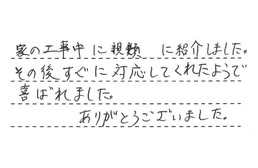 家の工事中に親類 に紹介しました。
その後すぐに対応してくれたようで
喜ばれました。
ありがとうございました。